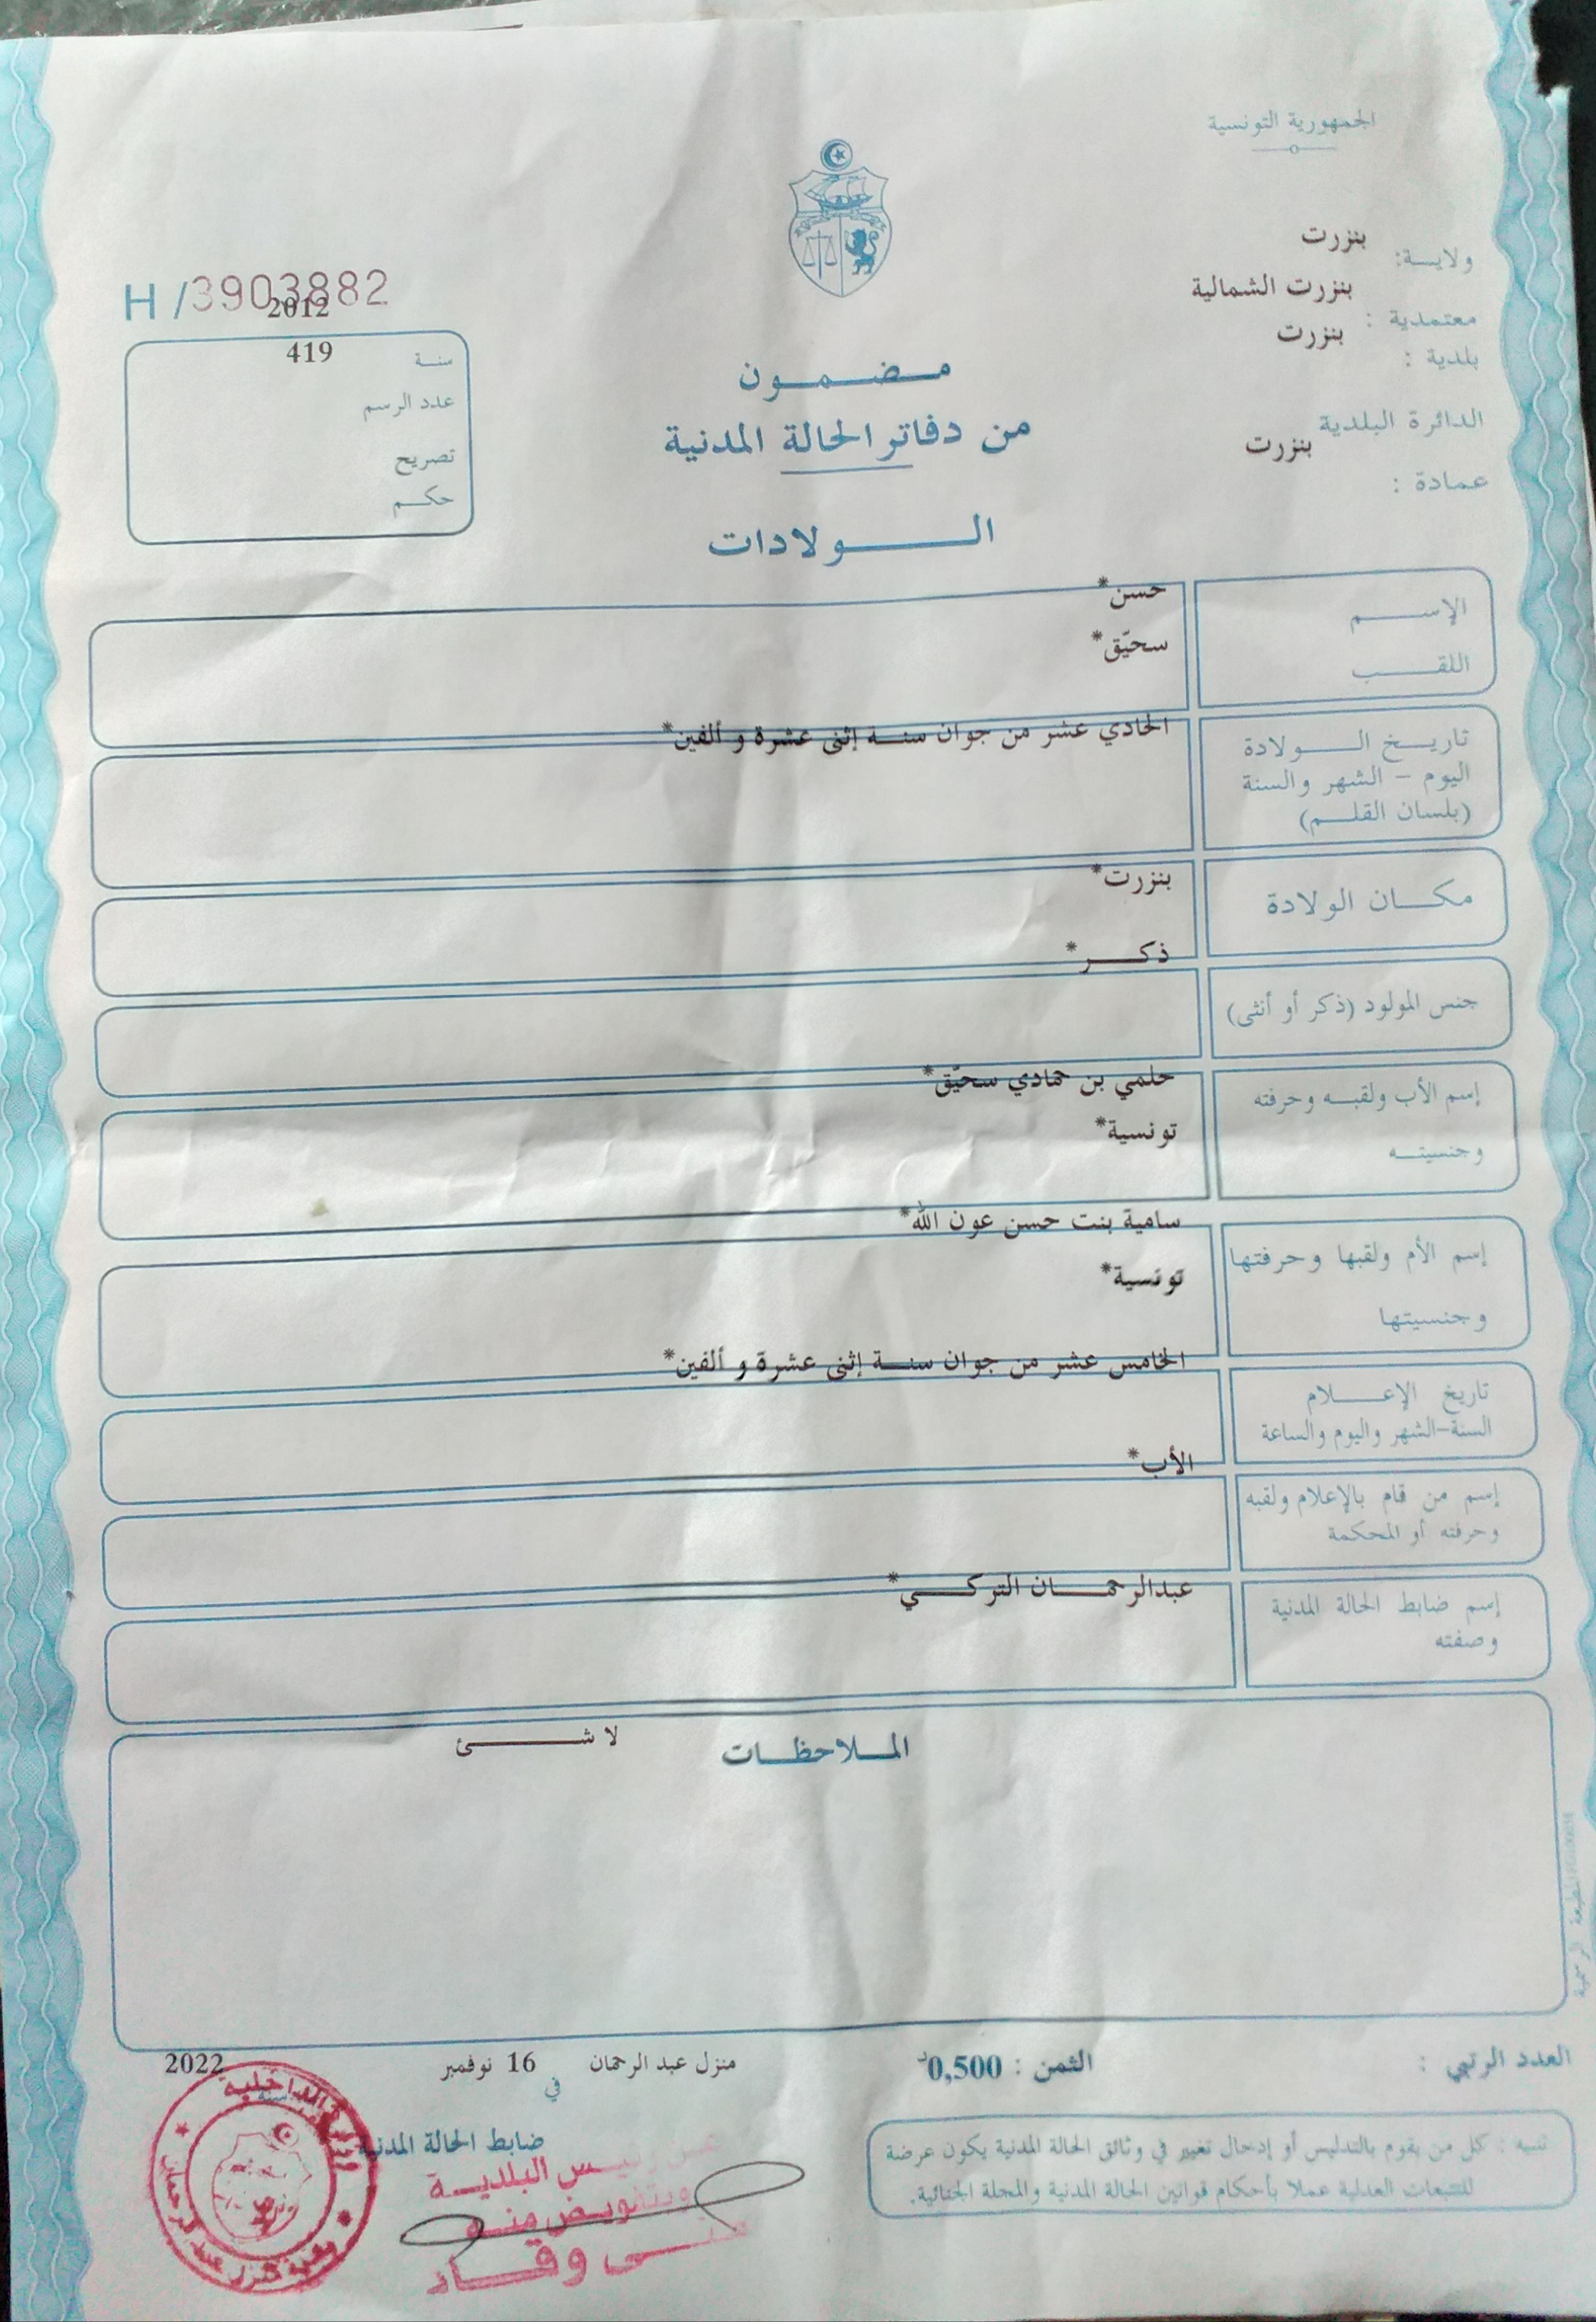 الجمهورية التونسية
ولايـــة: بنزرت
معتمدية : بنزرت الشمالية
بلدية : بنزرت
الدائرة البلدية
عمادة : بنزرت
H / 3903882
2012
سنـة 419
عدد الرسم
تصريح
حكــم
مـــضـــمـــون
من دفاتر الحالة المدنية
الــــولادات
الإســـــم حسن*
اللقــــب سحيّق*
تاريـــخ الـــــولادة الحادي عشر من جوان سنـــة إثنى عشرة و ألفين*
اليوم - الشهر والسنة
(بلسان القلـــم)
مكـــان الولادة بنزرت*
جنس المولود (ذكر أو أنثى) ذكـــر*
إسم الأب ولقبـــه وحرفته حلمي بن حمادي سحيّق*
وجنسيتـــه تونسية*
إسم الأم ولقبها وحرفتها سامية بنت حسن عون الله*
وجنسيتها تونسية*
تاريخ الإعـــــلام الخامس عشر من جوان سنـــة إثنى عشرة و ألفين*
السنة-الشهر واليوم والساعة
إسم من قام بالإعلام ولقبه الأب*
وحرفته أو المحكمة
إسم ضابط الحالة المدنية عبدالرحمـــان التركـــي*
وصفته
المـــلاحظـــات لا شـــــئ
العدد الرتبي :
الثمن : 0,500د
منزل عبد الرحمان في 16 نوفمبر سنة 2022
ضابط الحالة المدنية
تنبيه : كل من يقوم بالتدليس أو إدخال تغيير في وثائق الحالة المدنية يكون عرضة
للتتبعات العدلية عملا بأحكام قوانين الحالة المدنية والمجلة الجنائية.
عن رئيـس البلديـــة
وبتفويـض منـــه
وقـــاد